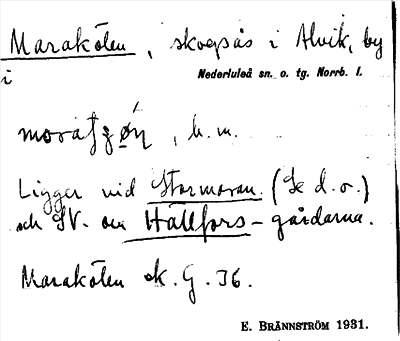 Marakölen, skogsås i Alvik, by
i Nederluleå sn. o. tg. Norrb. l.
b. m.
Ligger vid Stormaran. (Se d. o.)
och SV. om Hällfors-gårdarna.
Marakölen ek. G. 36.
E. BRÄNNSTRÖM 1931.